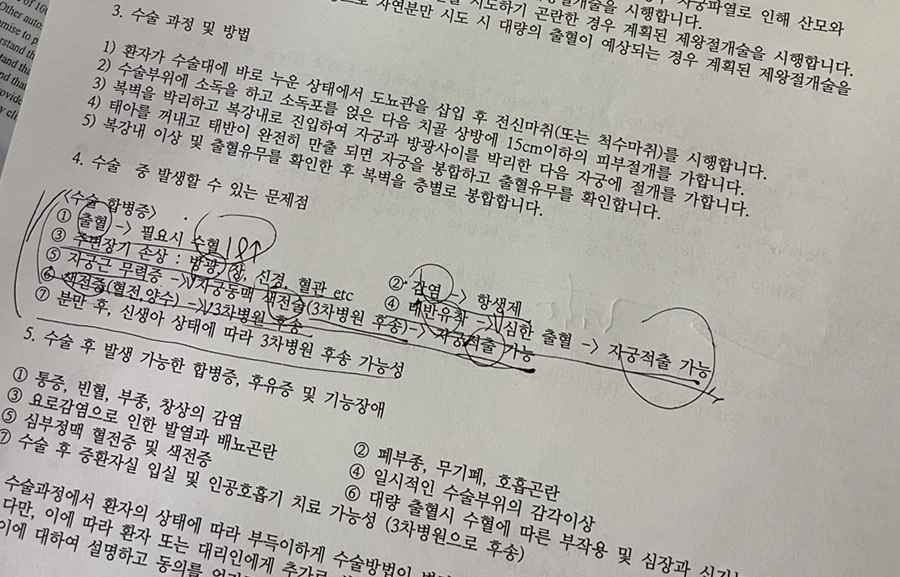 of 10
Other auto
mise to p
rstand th
tand tha
nd that
ovide
y cli
자궁파열로 인해 산모와
시도하기 곤란한 경우 계획된 제왕절개술을 시행합니다.
자연분만 시도 시 대량의 출혈이 예상되는 경우 계획된 제왕절개술을
3. 수술 과정 및 방법
1) 환자가 수술대에 바로 누운 상태에서 도뇨관을 삽입 후 전신마취(또는 척수마취)를 시행합니다.
2) 수술부위에 소독을 하고 소독포를 얹은 다음 치골 상방에 15cm이하의 피부절개를 가합니다.
3) 복벽을 박리하고 복강내로 진입하여 자궁과 방광사이를 박리한 다음 자궁에 절개를 가합니다.
4) 태아를 꺼내고 태반이 완전히 만출 되면 자궁을 봉합하고 출혈유무를 확인합니다.
5) 복강내 이상 및 출혈유무를 확인한 후 복벽을 층별로 봉합합니다.
4. 수술 중 발생할 수 있는 문제점
<수술 합병증>
① 출혈 -> 필요시 수혈 ② 감염 -> 항생제
③ 주변장기 손상 : 방광, 장, 신경, 혈관 etc ④ 태반유착 -> 심한 출혈 -> 자궁적출 가능
⑤ 자궁근 무력증 -> 자궁동맥 색전술(3차병원 후송)-> 자궁적출 가능
⑥ 색전증(혈전,양수) -> 3차병원 후송
⑦ 분만 후, 신생아 상태에 따라 3차병원 후송 가능성
5. 수술 후 발생 가능한 합병증, 후유증 및 기능장애
① 통증, 빈혈, 부종, 창상의 감염 ② 폐부종, 무기폐, 호흡곤란
③ 요로감염으로 인한 발열과 배뇨곤란 ④ 일시적인 수술부위의 감각이상
⑤ 심부정맥 혈전증 및 색전증 ⑥ 대량 출혈시 수혈에 따른 부작용 및 심장과 신기능
⑦ 수술 후 중환자실 입실 및 인공호흡기 치료 가능성 (3차병원으로 후송)
수술과정에서 환자의 상태에 따라 부득이하게 수술방법이
다만, 이에 따라 환자 또는 대리인에게 추가로
이에 대하여 설명하고 동의를